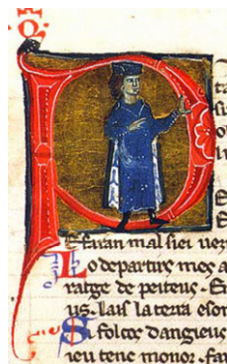 Efaran mal siei uezi
Lo departirs mes a
ratge de peiteus. En
us. lais la terra eson
Si folcos dangieus
ieu tenc monor. fan